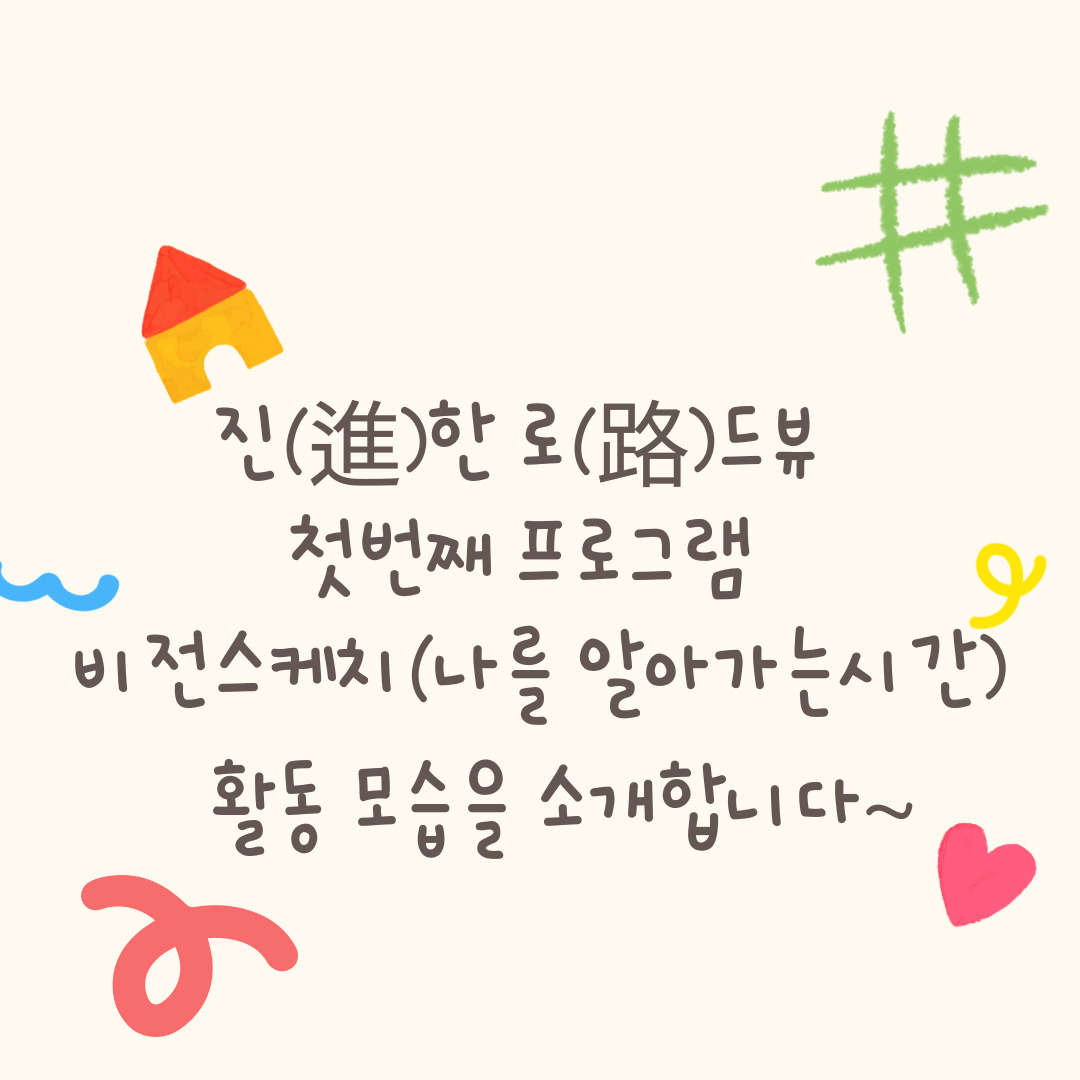 진(進)한 로(路)드뷰
첫번째 프로그램
비전스케치(나를 알아가는시간)
활동 모습을 소개합니다~